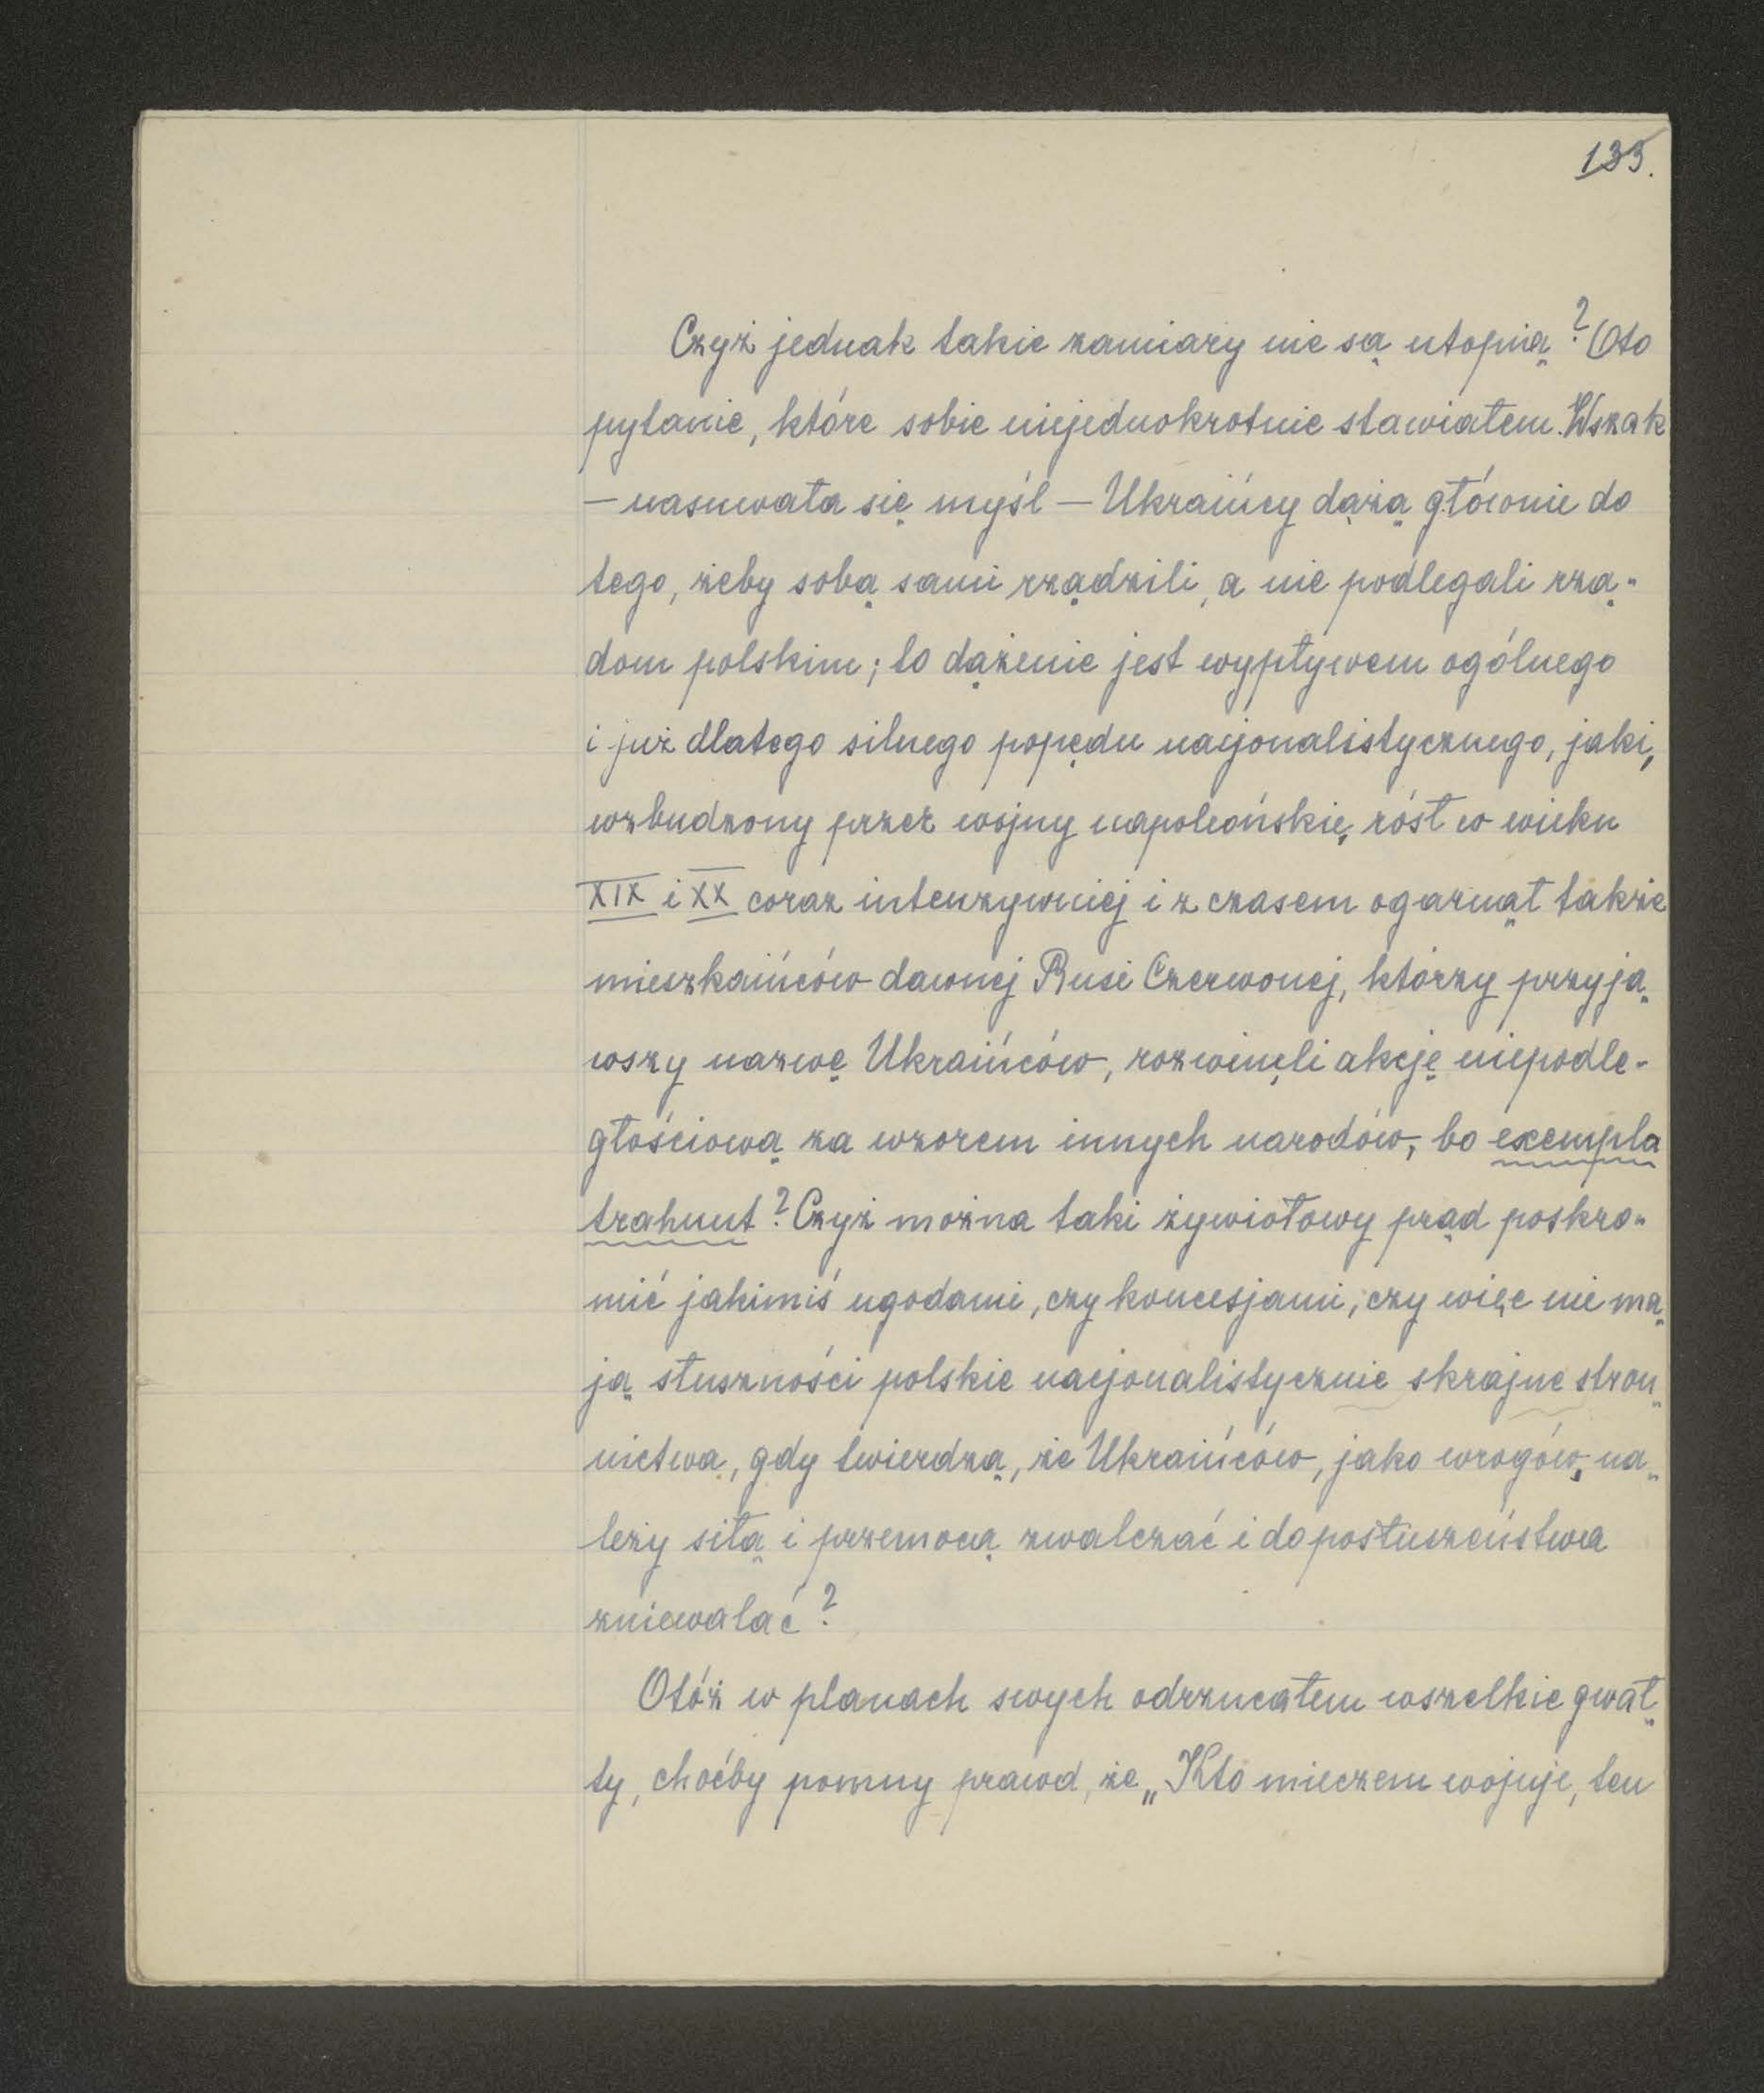 133.
Czyż jednak takie zamiary nie są utopią? Oto
pytanie, które sobie niejednokrotnie stawiałem. Wszak
— nasuwała się myśl — Ukraińcy dążą głównie do
tego, żeby sobą sami rządzili, a nie podlegali rzą-
dom polskim; to dążenie jest wypływem ogólnego
i już dlatego silnego popędu nacjonalistycznego, jaki,
wzbudzony przez wojny napoleońskie, rósł w wieku
XIX i XX coraz intenzywniej i z czasem ogarnął także
mieszkańców dawnej Rusi Czerwonej, którzy przyją-
wszy nazwę Ukraińców, rozwinęli akcję niepodle-
głościową za wzorem innych narodów, bo exempla
trahunt? Czyż można taki żywiołowy prąd poskro-
mić jakimiś ugodami, czy koncesjami, czy więc nie ma-
ją słuszności polskie nacjonalistycznie skrajne stron-
nictwa, gdy twierdzą, że Ukraińców, jako wrogów, na-
leży siłą i przemocą zwalczać i do posłuszeństwa
zniewalać?
Otóż w planach swych odrzucałem wszelkie gwał-
ty, choćby pomny prawd, że „Kto mieczem wojuje, ten